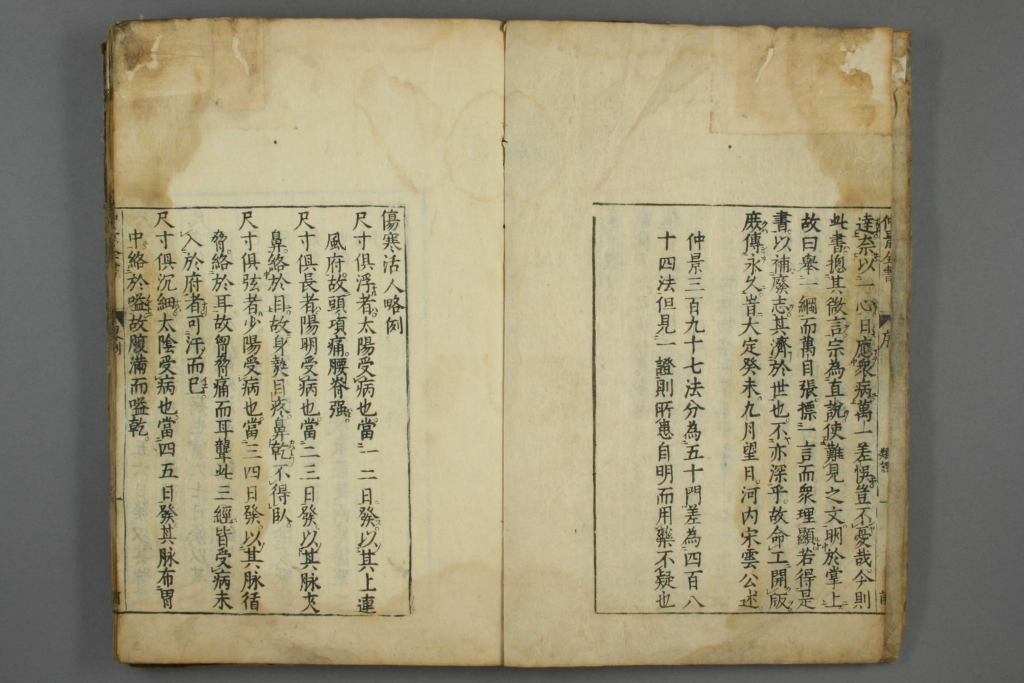 仲景全書 序
達奈以一心日應衆病萬一差悞豈不憂哉今則
此書揔其微言宗為直說使難見之文明於掌上
故曰舉一綱而萬目張摽一言而衆理顯若得是
書以補廢志其濟於世也不亦深乎故命工開版
庶傳永久旹大定癸未九月望日河内宋雲公述
仲景三百九十七法分為五十門差為四百八
十四法但見一證則所蒐自明而用藥不疑也
傷寒活人略例
尺寸俱浮者太陽受病也當一二日發以其上連
風府故頭項痛腰脊强
尺寸俱長者陽明受病也當二三日發以其脉夾
鼻絡於目故身熱目疼鼻乾不得臥
尺寸俱弦者少陽受病也當三四日發以其脉循
脅絡於耳故胷脅痛而耳聾此三經皆受病未
入於府者可汗而已
尺寸俱沉細太陰受病也當四五日發其脉布胃
中絡於嗌故腹滿而嗌乾